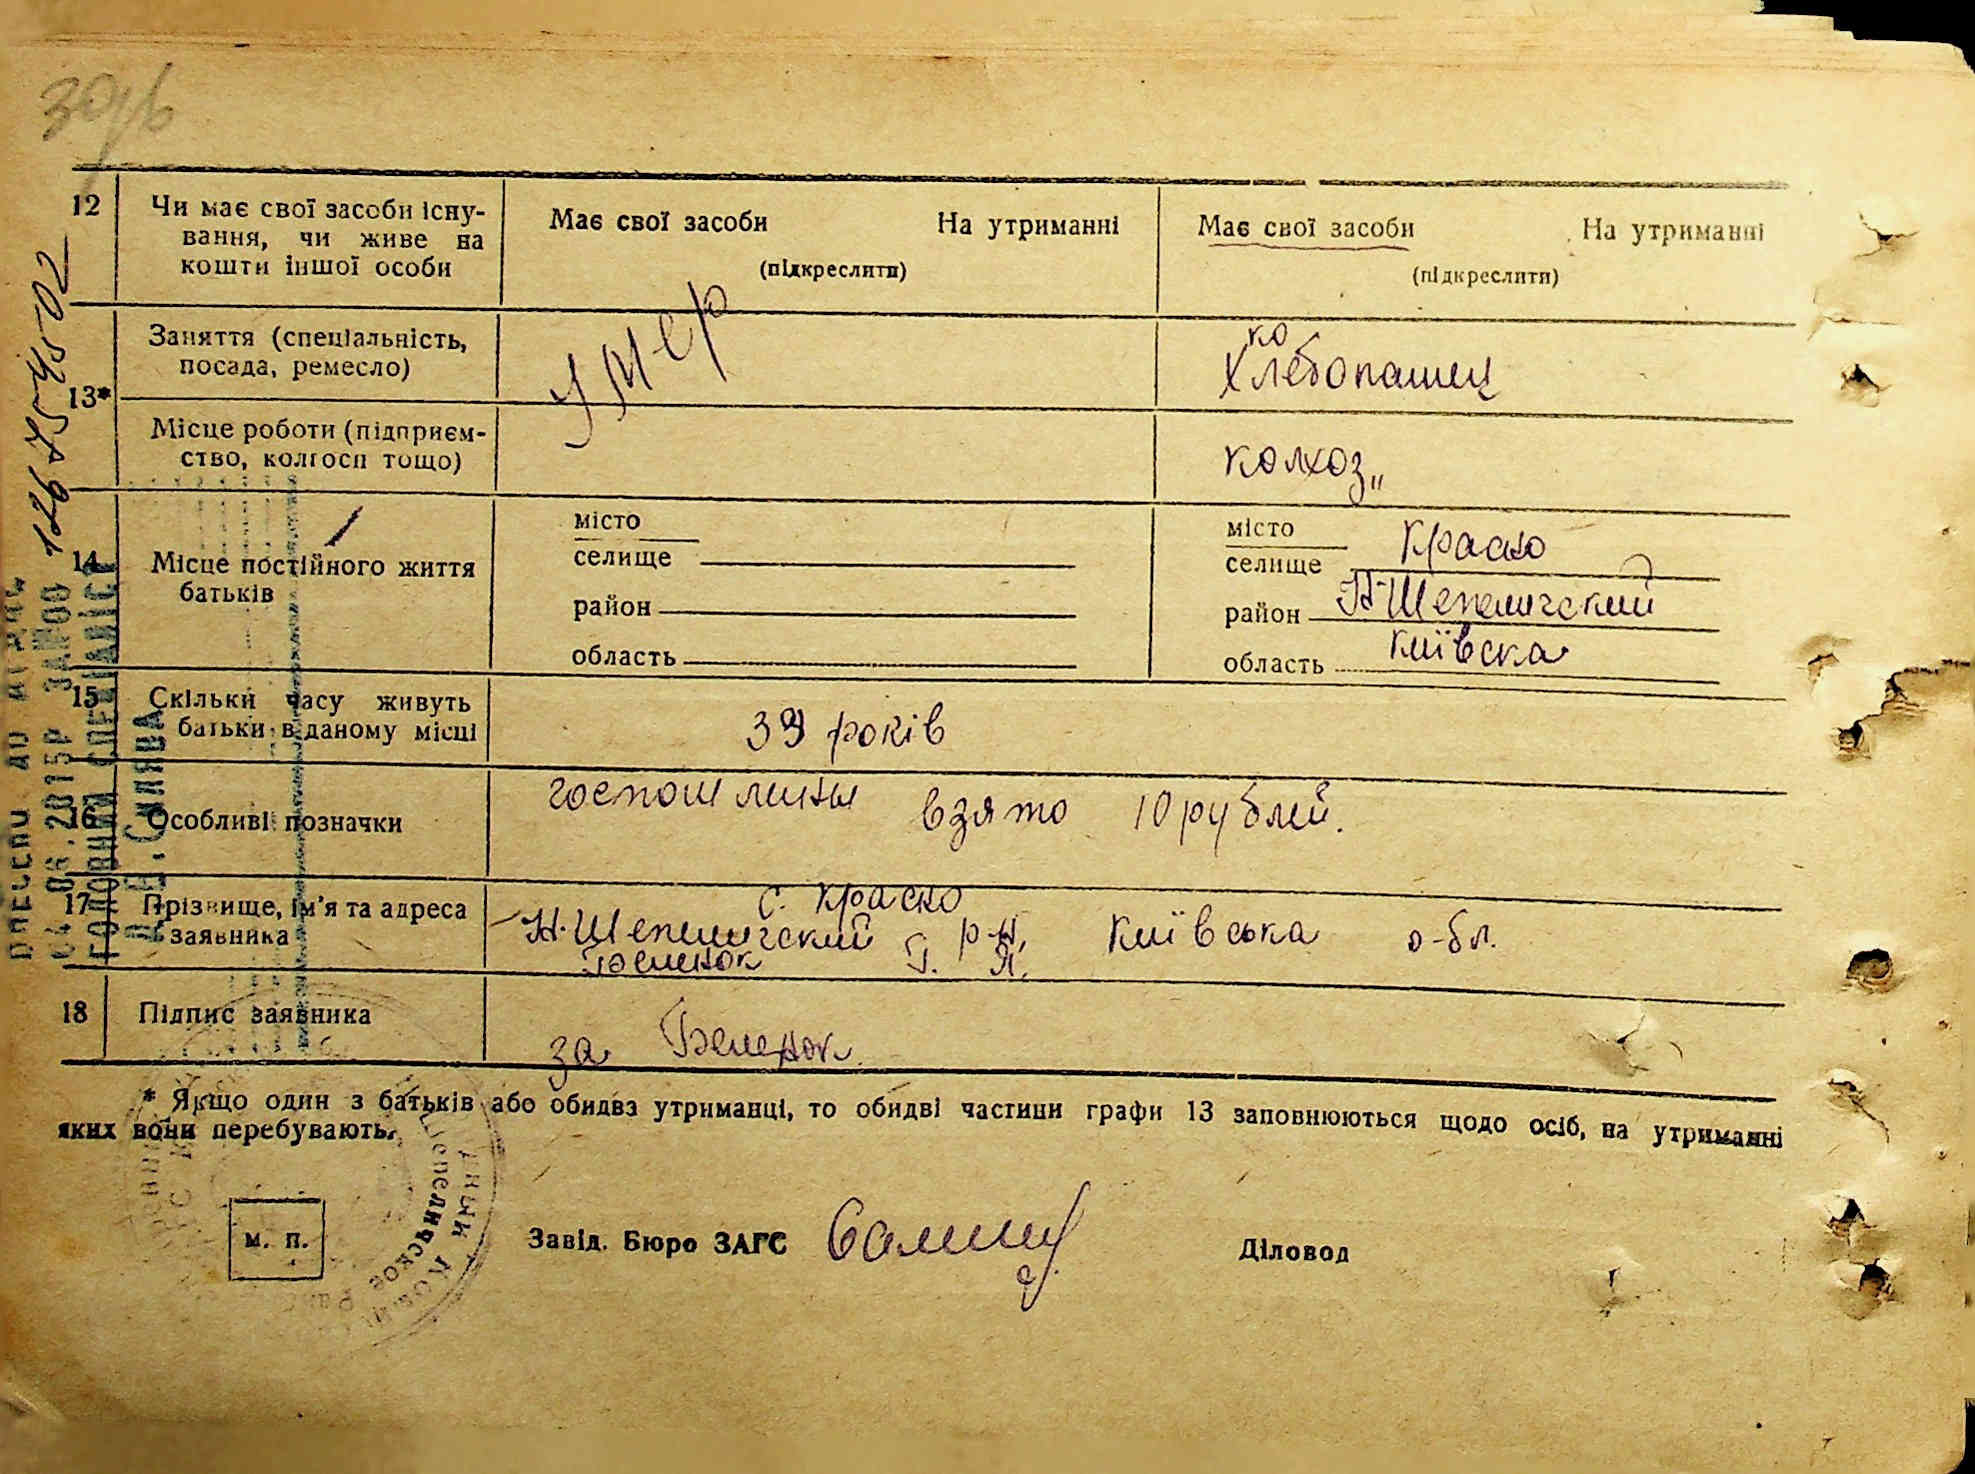 12 Чи має свої засоби існу-
вання, чи живе на
кошти іншої особи
Має свої засоби На утриманні
(підкреслити)
Має свої засоби На утриманні
(підкреслити)
13*
Заняття (спеціальність,
посада, ремесло)
Умер
Хлебопашец
Місце роботи (підприєм-
ство, колгосп тощо)
колхоз
14 Місце постійного життя
батьків
місто
селище
район
область
місто
селище Красно
район Н-Шепеличский
область Київска
15 Скільки часу живуть
батьки в даному місці
39 років
16 Особливі позначки
госпошлины взято 10 рублей.
17 Прізвище, ім'я та адреса
заявника
с. Красно
Н.Шепеличский р-н, Київська о-бл.
Беленок Г. Я.
18 Підпис заявника
за Беленок
* Якщо один з батьків або обидва утриманці, то обидві частини графи 13 заповнюються щодо осіб, на утриманні
яких вони перебувають.
м. п.
Завід. Бюро ЗАГС
Діловод
04.06.2015р
ГОЛОВНИЙ СПЕЦІАЛІСТ